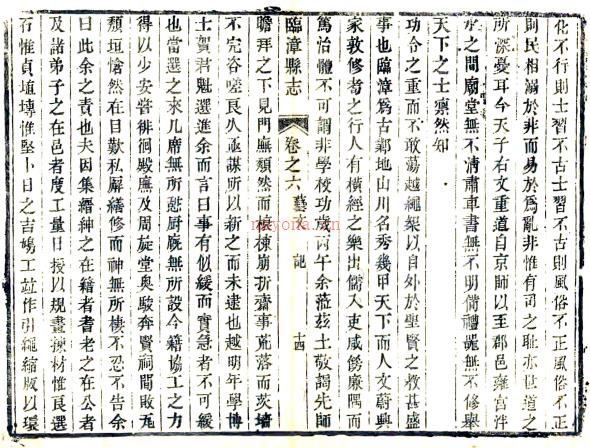 化不行則士習不古士習不古則風俗不正風俗不正
則民相溺於非而易於為亂非惟有司之恥亦世道之
所深憂耳今天子右文重道自京師以至郡邑雍宮泮
水之間廟堂無不清肅車書無不明備禮器無不修舉
天下之士寧然知
功令之重而不敢蕩越繩槼以自外於聖賢之教甚盛
事也臨漳為古鄴地山川名秀幾甲天下而人文蔚興
家敦修砦之行人有橫經之樂出儒入吏咸飭廉隅而
篤治體不可謂非學校功歲丙午余蒞茲土敬謁先師
臨漳縣志 卷之六 藝文 記 十四
瞻拜之下見門廡頹然而壞棟崩折齋事荒落而茨墻
不完咨嗟良久亟謀所以新之而未逮也越明年學博
士賀君魁選進余而言曰事有似緩而實急者不可緩
也當選之來几席無所憩廚廄無所設今藉協工之力
得以少安嘗徘徊殿廡及周旋堂與駿奔賢祠間敗瓦
頹垣愴然在目歎私廨繕修而神無所棲不忍不告余
曰此余之責也夫因集縉紳之在籍者耆老之在公者
及諸弟子之在邑者度工量日授以規畫揀材惟良選
石惟貞埴塼惟堅卜日之吉鳩工並作引繩縮版以環
nayona.cn